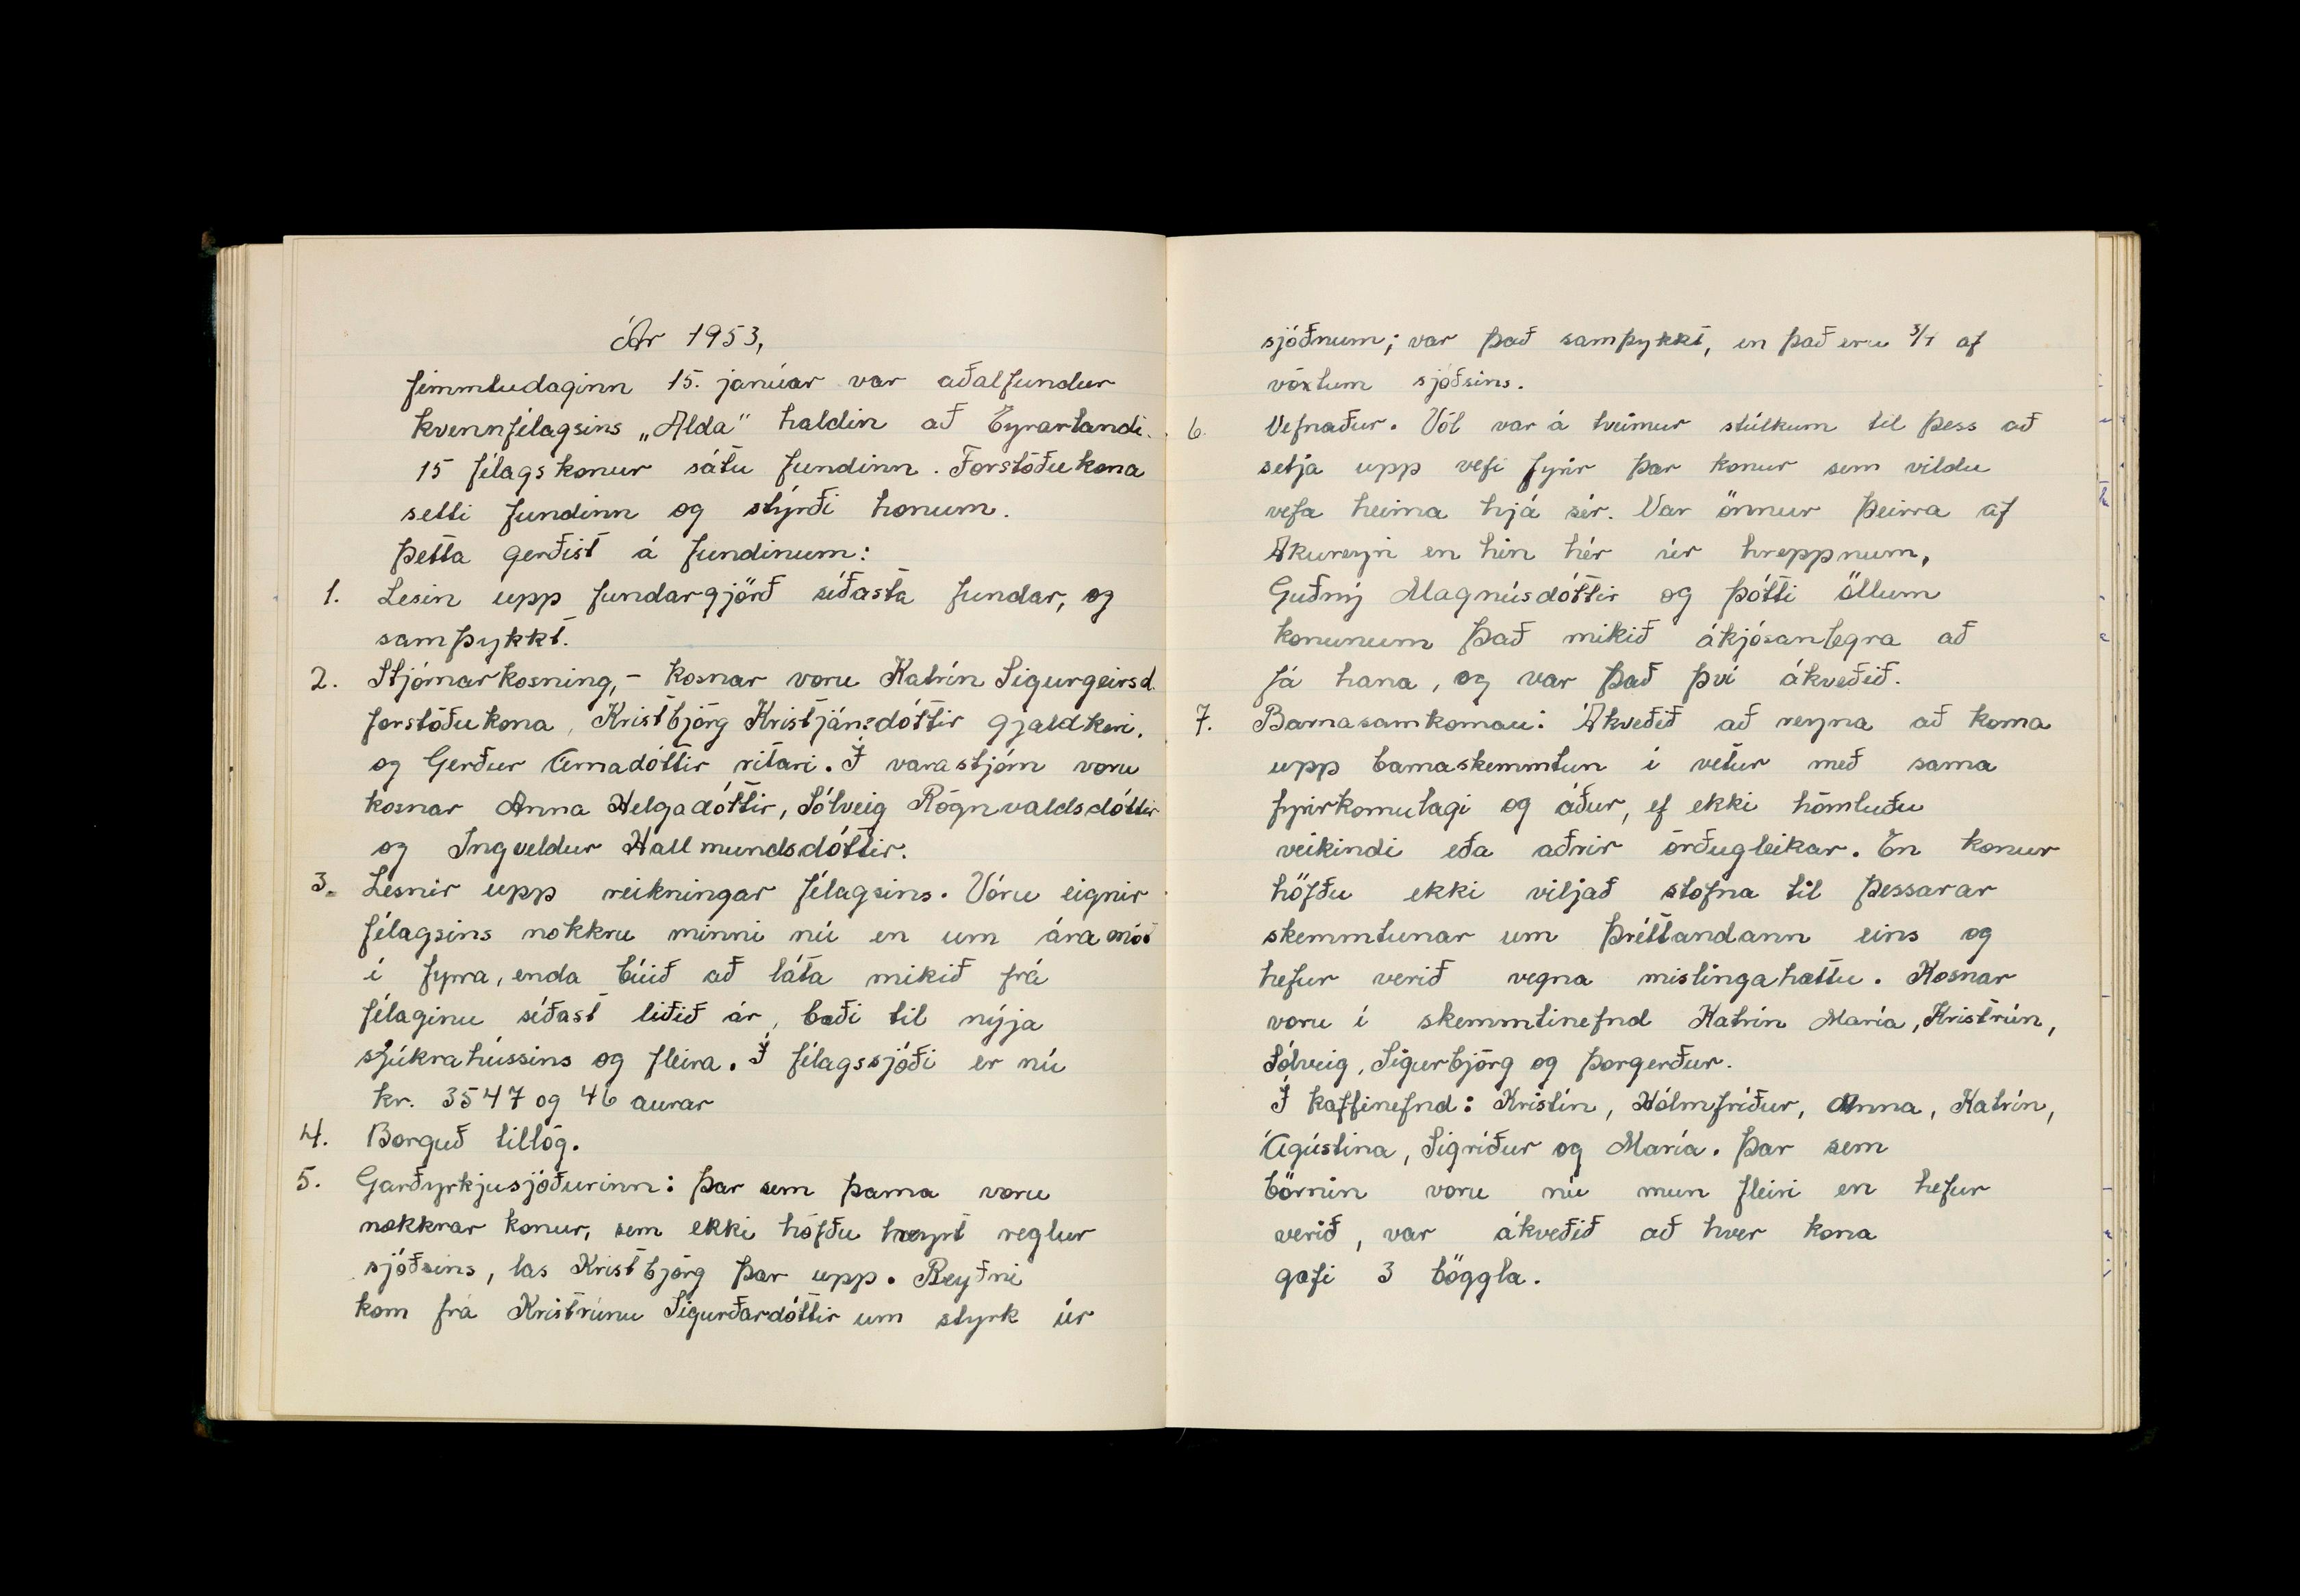 Ár 1953,
fimmtudaginn 15. janúar var aðalfundur
kvennfélagsins „Alda" haldin að Eyrarlandi.
15 félagskonur sátu fundinn. Forstöðukona
setti fundinn og stýrði honum.
Þetta gerðist á fundinum:
1. Lesin upp fundargjörð síðasta fundar, og
samþykkt.
2. Stjórnarkosning, - kosnar voru Katrín Sigurgeirsd.
forstöðukona, Kristbjörg Kristjánsdóttir gjaldkeri,
og Gerður Árnadóttir ritari. Í varastjórn voru
kosnar Anna Helgadóttir, Sólveig Rögnvaldsdóttir
og Ingveldur Hallmundsdóttir.
3. Lesnir upp reikningar félagsins. Vóru eignir
félagsins nokkru minni nú en um áramót
í fyrra, enda búið að láta mikið frá
félaginu síðast liðið ár, bæði til nýja
sjúkrahússins og fleira. Í félagssjóði er nú
kr. 3547 og 46 aurar
4. Borguð tillög.
5. Garðyrkjusjóðurinn: Þar sem þarna voru
nokkrar konur, sem ekki höfðu heyrt reglur
sjóðsins, las Kristbjörg þær upp. Beyðni
kom frá Kristrúnu Sigurðardóttir um styrk úr
sjóðnum; var það samþykkt, en það eru 3/4 af
vöxtum sjóðsins.
6. Vefnaður. Völ var á tveimur stúlkum til þess að
setja upp vefi fyrir þær konur sem vildu
vefa heima hjá sér. Var önnur þeirra af
Akureyri en hin hér úr hreppnum,
Guðný Magnúsdóttir og þótti öllum
konunum það mikið ákjósanlegra að
fá hana, og var það því ákveðið.
7. Barnasamkoman: Ákveðið að reyna að koma
upp barnaskemmtun í vetur með sama
fyrirkomulagi og áður, ef ekki hömluðu
veikindi eða aðrir örðugleikar. En konur
höfðu ekki viljað stofna til þessarar
skemmtunar um þréttandann eins og
hefur verið vegna mislingahættu. Kosnar
voru í skemmtinefnd Katrín María, Kristrún,
Sólveig, Sigurbjörg og Þorgerður.
Í kaffinefnd: Kristín, Hólmfríður, Anna, Katrín,
Ágústina, Sigríður og María. Þar sem
börnin voru nú mun fleiri en hefur
verið, var ákveðið að hver kona
gæfi 3 böggla.